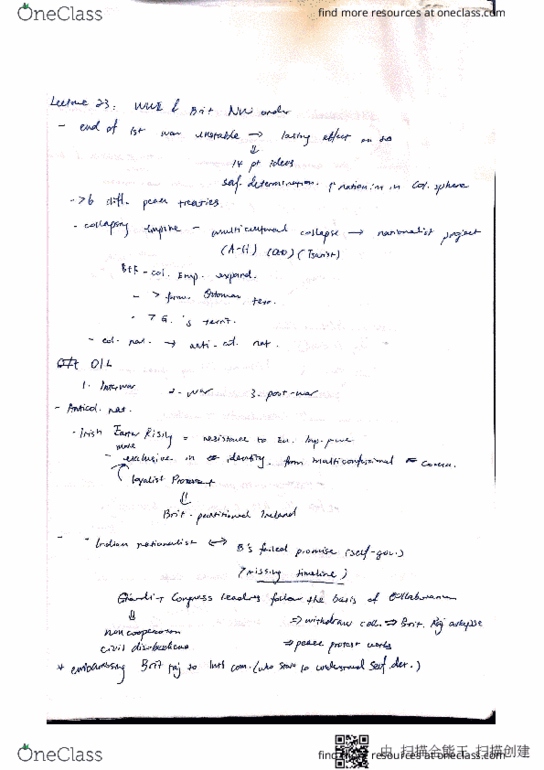 OneClass
find more resources at oneclass.com
Lecture 23: WWII & Brit New order
- end of 1st war unstable → lasing effect on
⇓
14 pt ideas
self-determination. nation in Col. sphere
- >6 diff. peace treaties
- collapsing Empire - multicultural collapse → nationalist project
(A-H) (Otto) (Tsarist)
B&F - col. Emp. expand.
- > form. Ottoman terr.
- > G.'s territ.
- col. nat. → anti-col. nat.
OIL
1. Interwar 2. war 3. post-war
- Anticol. nat.
- Irish Easter Rising = resistance to Eu.
more
- exclusive in identity. from multiconfessional
loyalist Protestant
⇓
Brit. partitioned Ireland
- Indian nationalist ⇔ B's failed promise (self-gov.)
(missing timeline)
Ghandi → Congress leaders follow the basis of Collaboration
⇓ ⇒ withdraw coll. ⇒ Brit. Raj
non cooperation
civil disobedience ⇒ peace protest works
* embarrassing Brit to Intl com. (who to understand self. der.)
中 扫描全能王 扫描创建
OneClass
find more resources at oneclass.com